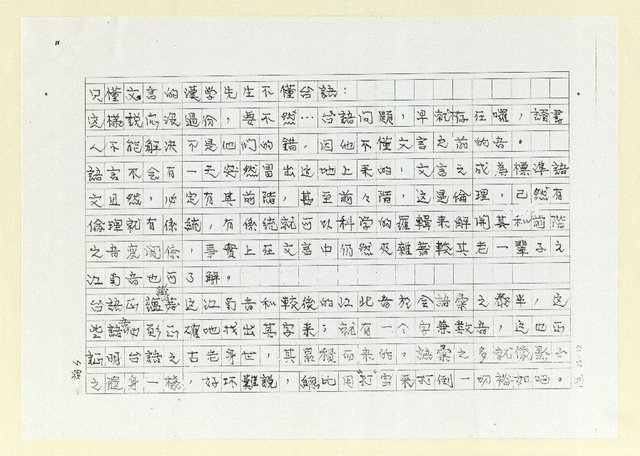 只懂文言的漢学先生不懂台語：
这樣説应没過份，要不然…台語问題，早就存在囉，讀書
人不能解決不是他们的錯，因他不懂文言之前的音。
語言不会有一天突然冒出这地上来的，文言之成為標準語
文且然，必定有其前階，甚至前々階，这是倫理，已然有
倫理就有係統，有係統就可以科学的邏輯来解開其和前階
之音变関係，事實上在文言中仍然夾雜著較其老一輩子之
江南音也可了解。
台語正蘊藏著这江南音和較後的江北音於全語彙之泰半，这
些語音也能正確地找出其字来；就有一个字兼数音，这也正
証明台語之古老身世，其累積而来的。語彙之多就像影子
之隨身一樣，好坏難説，總比用"打"字来打倒一切裕如吧。